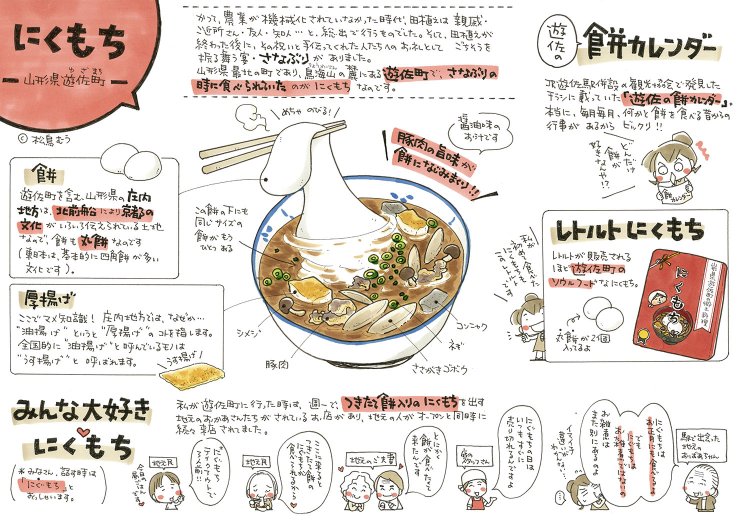 にくもち
山形県遊佐町
ゆざまち
© 松鳥むう
かつて、農業が機械化されていなかった時代、田植えは親戚・
ご近所さん・友人・知人…と、総出で行うものでした。そして、田植えが
終わった後に、その祝いと手伝ってくれた人たちへのお礼として ごちそうを
振る舞う宴・さなぶりがありました。
山形県最北の町であり、鳥海山の麓にある遊佐町で、さなぶりの
時に食べられていたのがにくもちなんです。
遊佐の
餅カレンダー
JR遊佐駅併設の観光協会で発見した
チラシに載っていた「遊佐の餅カレンダー」。
本当に、毎月毎月、何かと餅を食べる昔からの
行事があるからビックリ!!
どんだけ
餅が
好きなんや!?
餅カレンダー
めちゃのびる!
醤油味の
お汁です
豚肉の旨味が
餅になじみまくり!!
餅
遊佐町を含む、山形県の庄内
地方は、北前船により京都の
文化がいろいろ伝えられている土地
なので、餅も丸餅なんです
(東日本は、基本的に四角餅が多い
文化です)。
この餅の下にも
同じサイズの
餅がもう
ひとつある
厚揚げ
ここでマメ知識! 庄内地方では、なぜか…
"油揚げ"というと"厚揚げ"のコトを指します。
全国的に"油揚げ"と呼んでいるモノは
"うす揚げ"と 呼ばれます。
うす揚げ
シメジ
豚肉
ささがきゴボウ
ネギ
コンニャク
私が
初めて食べた
にくもちも
レトルト
です
レトルトにくもち
レトルトが販売される
ほど遊佐町の
ソウルフードなにくもち。
丸餅が2個
入ってるよ
にくもち
みんな大好き
にくもち
*みなさん、話す時は
「にぐもち」と
おっしゃいます。
私が遊佐町に行った時は、週一で、つきたて餅入りのにくもちを出す
地元のおかあさんたちがされているお店があり、地元の人がオープンと同時に
続々来店されてました。
地元民
今日の
昼ごはんです
にぐもち
テイクアウトで
2人前!!
地元民
ここに来ると
つきたて餅の
にぐもちが
食べられるから
地元のご夫妻
とにかく
餅が食べたくて
来たんです
店のスタッフさん
にぐもちの日は
いつもすぐに
売り切れるんですよ
イマイチ
違いが
わからない…
にぐもちは
お正月にも食べるよ
でも
にぐもちは
お雑煮ではないの
お雑煮は
また別にあるのよ
駅で出会った
地元の
おばあちゃん